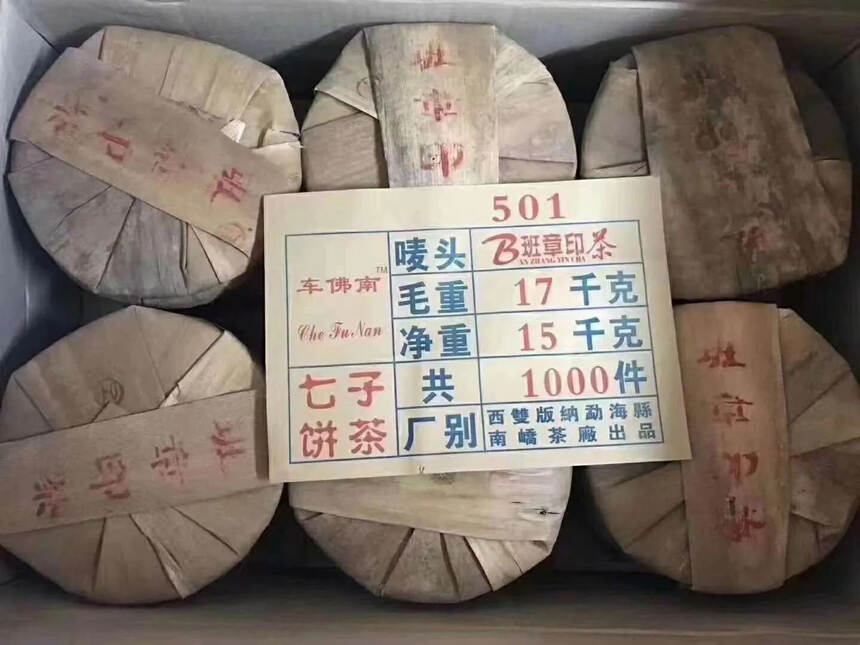 501
车佛南™
Che Fu Nan
唛头
B班章印茶
ANZHANG YIN CHA
毛重
17 千克
净重
15 千克
七子
饼茶
共
1000件
厂别
西雙版纳勐海縣
南嶠茶廠出品
班章印茶
班章印
班章印茶
班章印茶